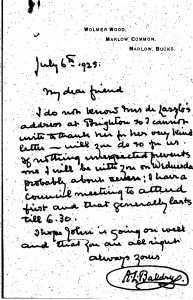 WOLMER WOOD,
MARLOW COMMON,
MARLOW, BUCKS.
July 6th 1925.
My dear friend
I do not know Mrs de Laszlo's
address at Brighton so I cannot
write to thank her for her very kind
letter — will you do so for us.
If nothing unexpected prevents
me I will be with you on Wednesday
probably about seven; I have a
council meeting to attend
first and that generally lasts
till 6.30.
I hope John is going on well
and that you are all right
always yours
A. L. Baldry